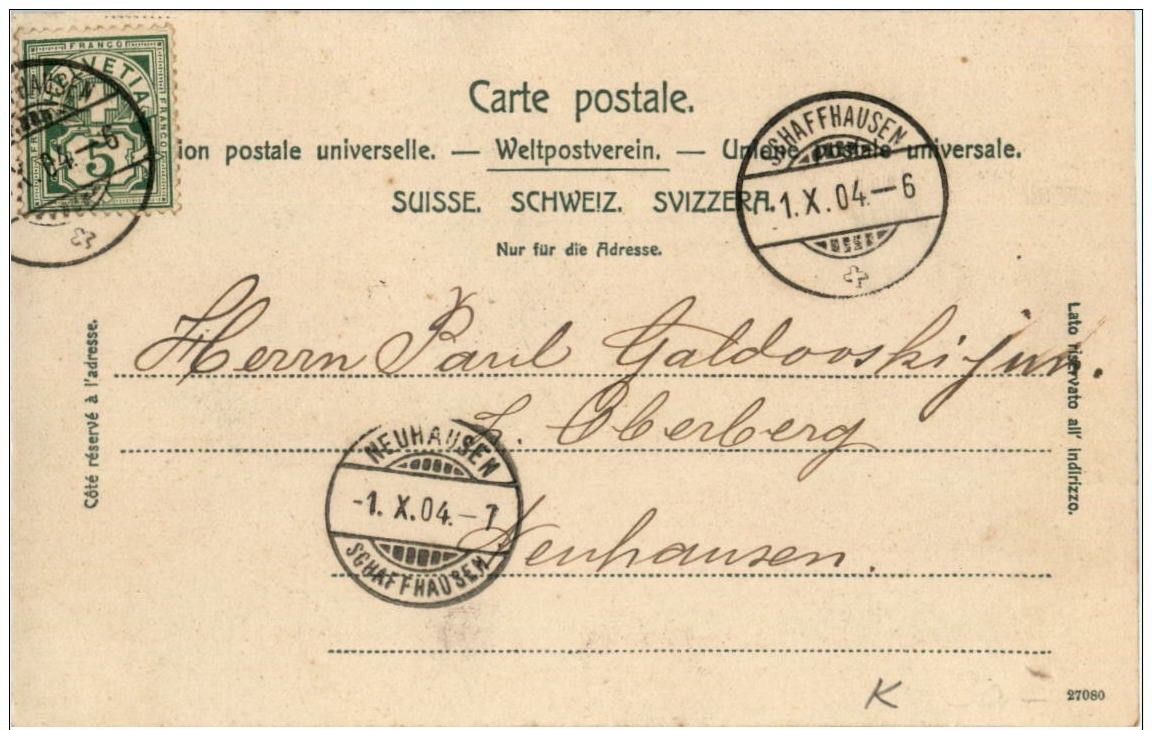 FRANCO
HELVETIA
FRANCO
FRANCO
5
HAUSEN
1. X. 04.-6
Carte postale.
ion postale universelle. — Weltpostverein. — Unione postale universale.
SUISSE. SCHWEIZ. SVIZZERA.
Nur für die Adresse.
SCHAFFHAUSEN
1. X. 04.-6
Côté réservé à l'adresse.
Lato riservato all' indirizzo.
Herrn Paul Galdovski jun.
z. Oberberg
Neuhausen.
NEUHAUSEN
-1. X. 04.-7
SCHAFFHAUSEN
K
27080